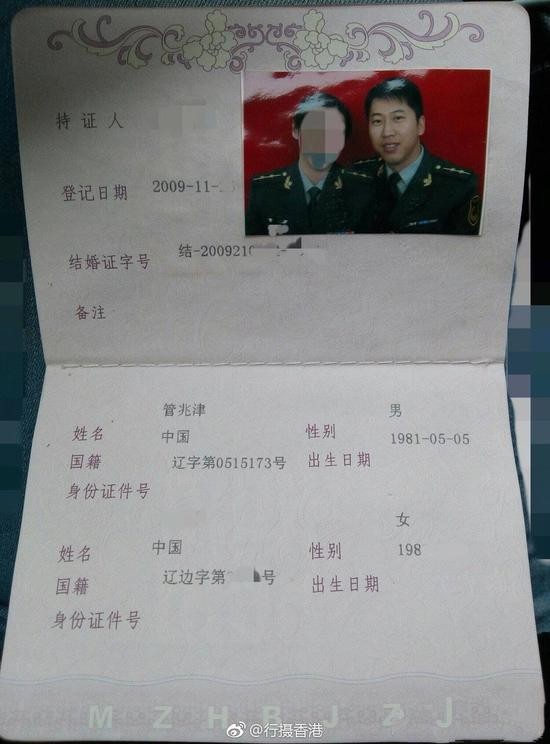 持证人
登记日期 2009-11-
结婚证字号 结-2009210
备注
管兆津 男
姓名 性别
中国 1981-05-05
国籍 出生日期
辽字第0515173号
身份证件号
女
姓名 性别
中国 198
国籍 出生日期
辽边字第 号
身份证件号
MZHBJZJ
@行摄香港